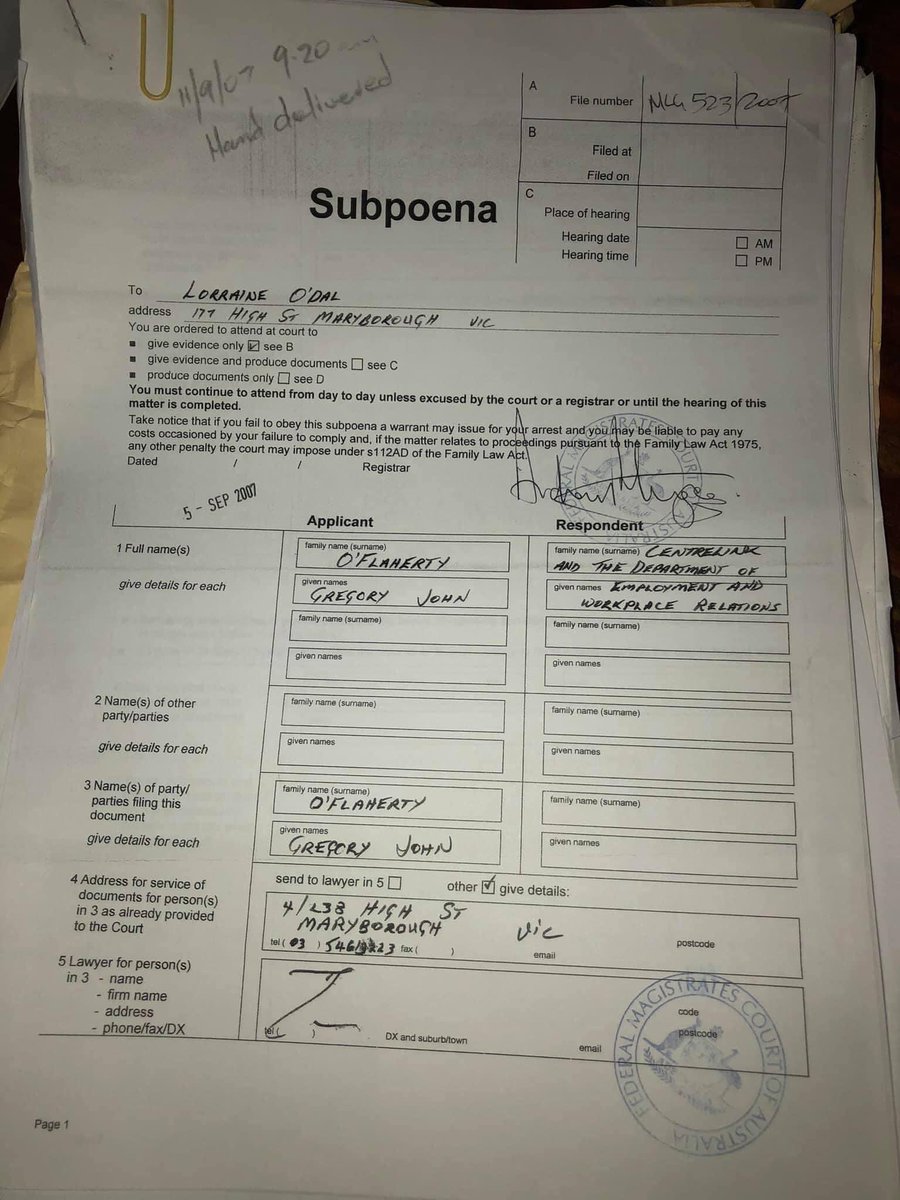 11/9/07 9.20 am
Hand delivered
A
File number MLG 523/2007
B
Filed at
Filed on
C
Place of hearing
Hearing date
Hearing time
AM
PM
Subpoena
To LORRAINE O'DAL
address 177 HIGH ST MARYBOROUGH VIC
You are ordered to attend at court to
▪ give evidence only ☑ see B
▪ give evidence and produce documents ☐ see C
▪ produce documents only ☐ see D
You must continue to attend from day to day unless excused by the court or a registrar or until the hearing of this
matter is completed.
Take notice that if you fail to obey this subpoena a warrant may issue for your arrest and you may be liable to pay any
costs occasioned by your failure to comply and, if the matter relates to proceedings pursuant to the Family Law Act 1975,
any other penalty the court may impose under s112AD of the Family Law Act.
Dated / / Registrar
5 - SEP 2007
Applicant Respondent
1 Full name(s)
give details for each
family name (surname)
O'FLAHERTY
given names
GREGORY JOHN
family name (surname)
given names
family name (surname) CENTRELINK
AND THE DEPARTMENT OF
given names EMPLOYMENT AND
WORKPLACE RELATIONS
family name (surname)
given names
2 Name(s) of other
party/parties
give details for each
family name (surname)
given names
family name (surname)
given names
3 Name(s) of party/
parties filing this
document
give details for each
family name (surname)
O'FLAHERTY
given names
GREGORY JOHN
family name (surname)
given names
4 Address for service of
documents for person(s)
in 3 as already provided
to the Court
send to lawyer in 5 ☐ other ☑ give details:
4/238 HIGH ST
MARYBOROUGH VIC
postcode
tel (03) fax ( ) email
5 Lawyer for person(s)
in 3 - name
- firm name
- address
- phone/fax/DX
code
postcode
tel ( ) DX and suburb/town email
FEDERAL MAGISTRATES COURT OF AUSTRALIA
Page 1